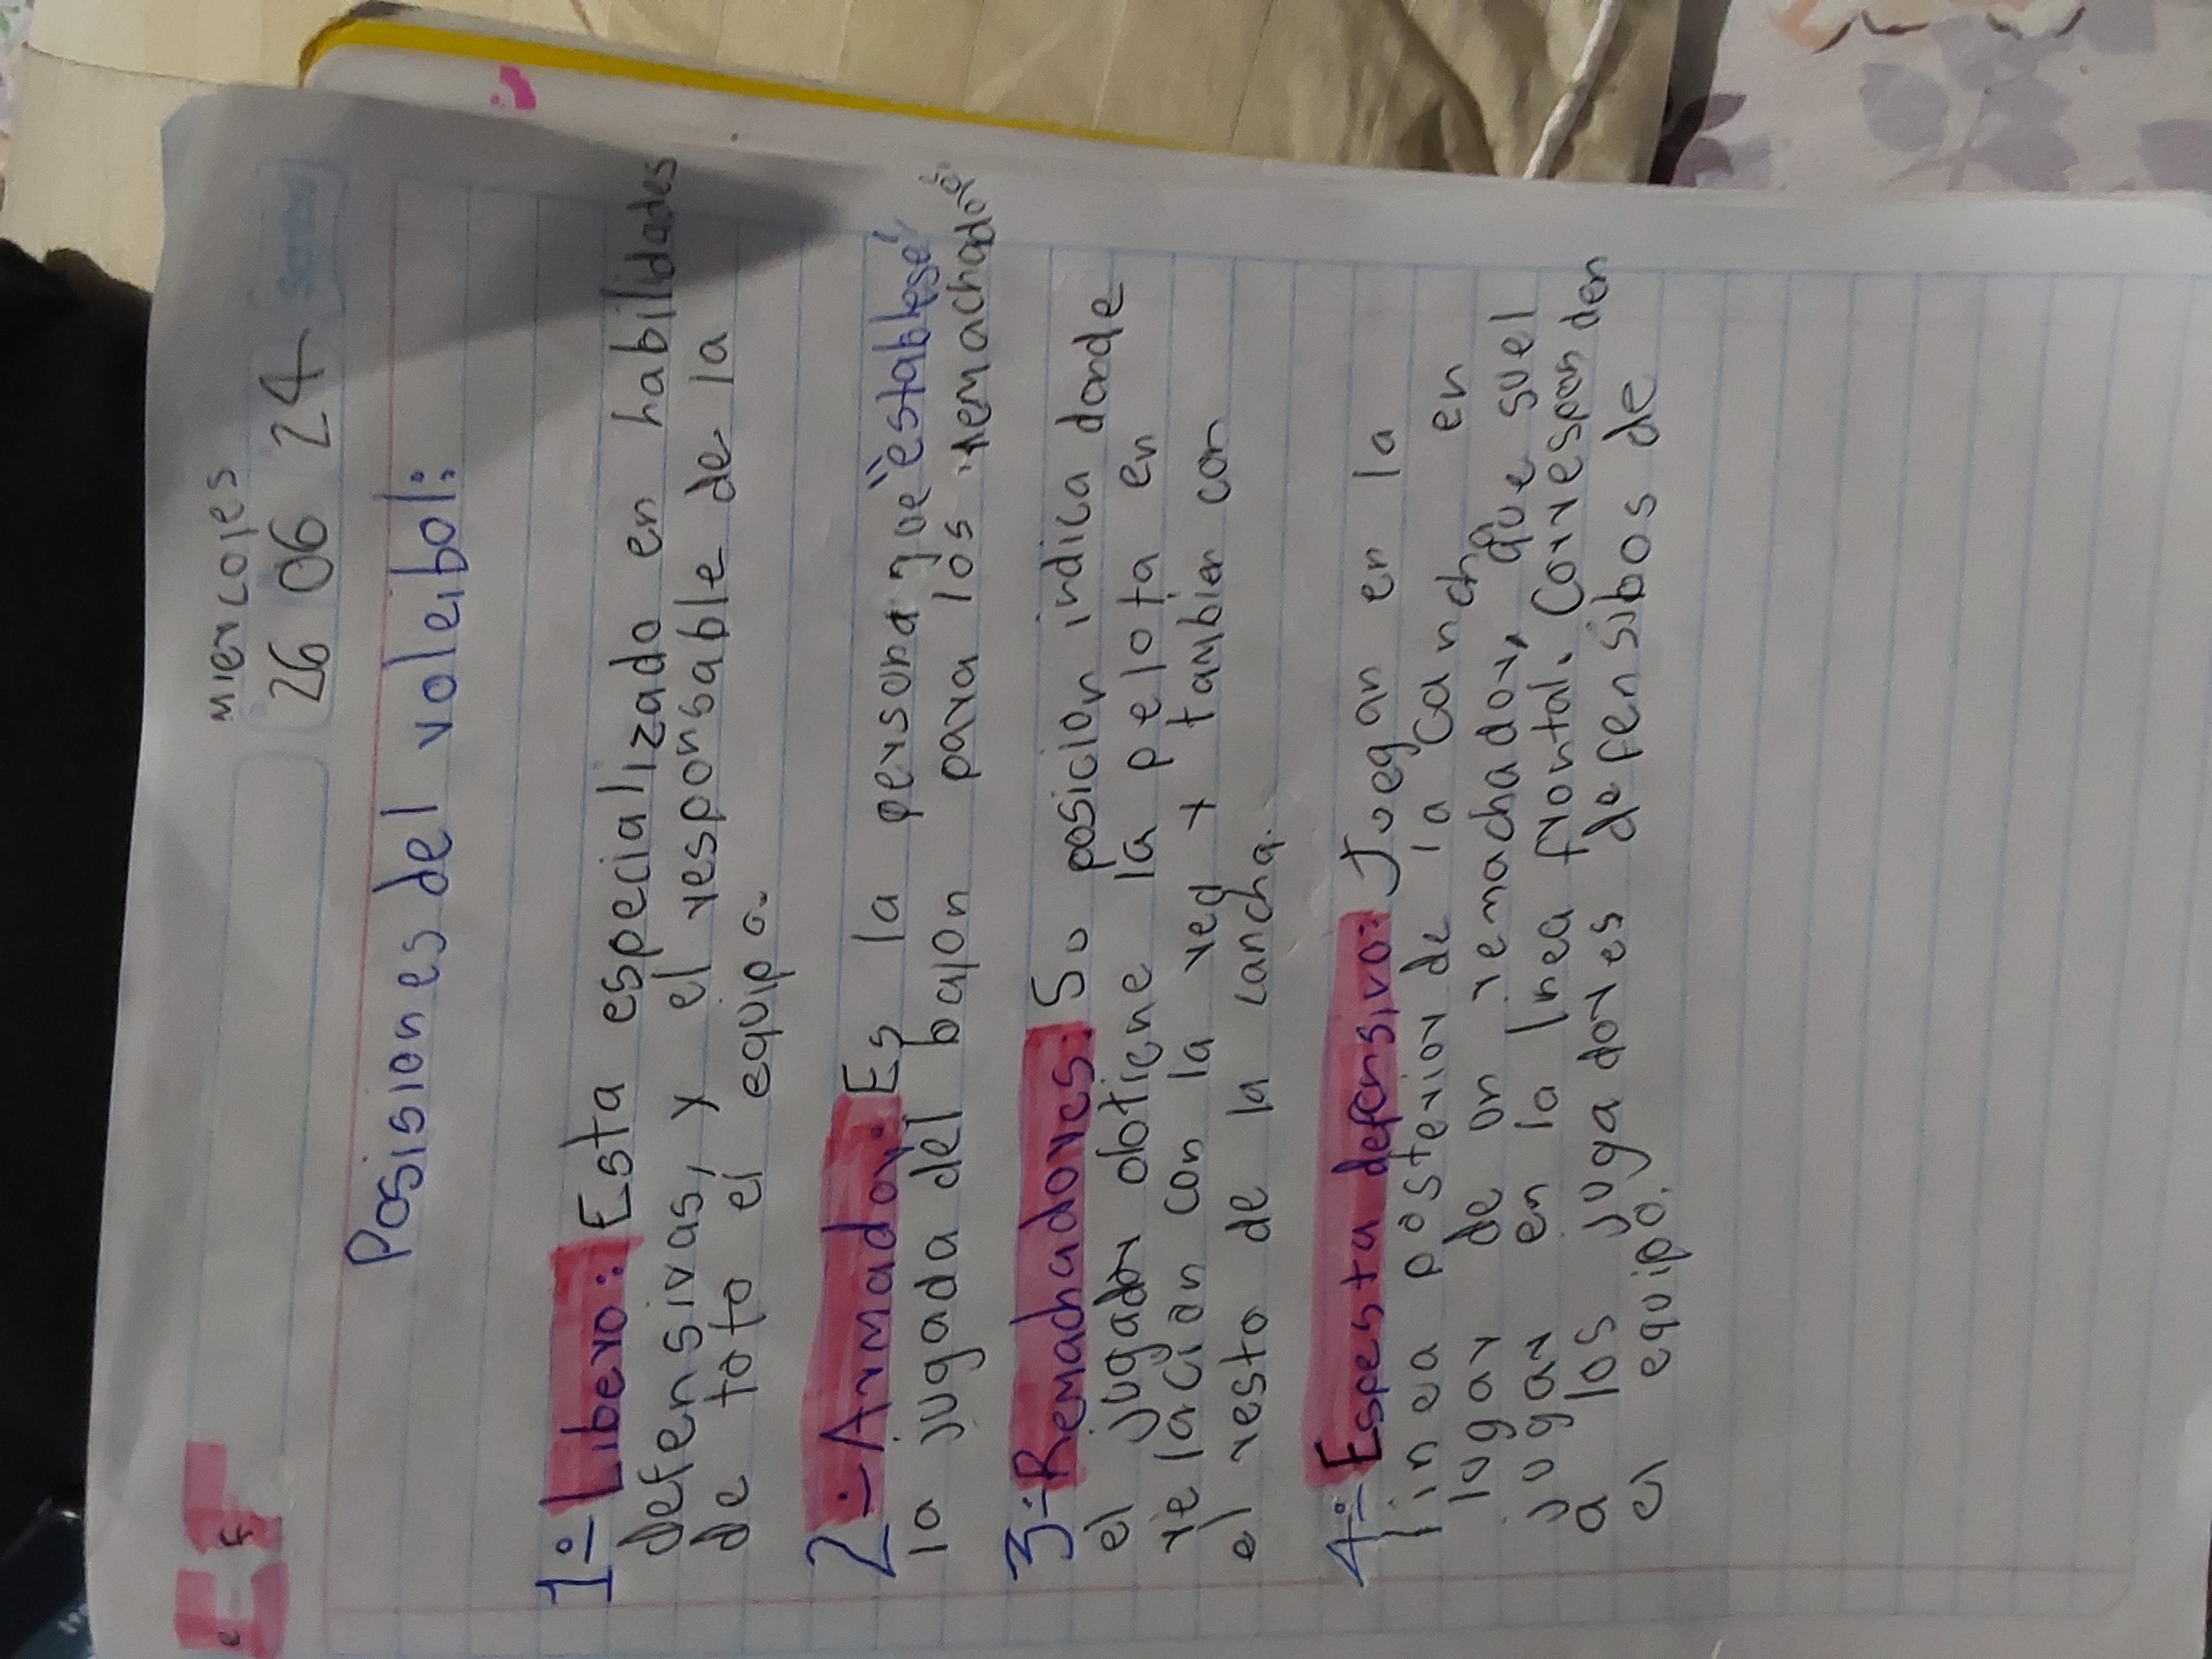 EF
miercoles
26 06 24
Posisiones del voleibol:
1÷ Libero: Esta especializado en habilidades
defensivas, y el responsable de la
de toto el equipo.
2÷Armador: Es la persona que "establese"
la jugada del balon para los remachado
3÷Remachadores: Su posicion indica donde
el jugador obtiene la pelota en
relacion con la red y tambien con
el resto de la cancha.
4÷ Espesta defensivo: Juegan en la
linea posterior de la canch en
lugar de un remachador, que suel
jugar en la linea frontal. Corresponden
a los jugadores defensibos de
el equipo.